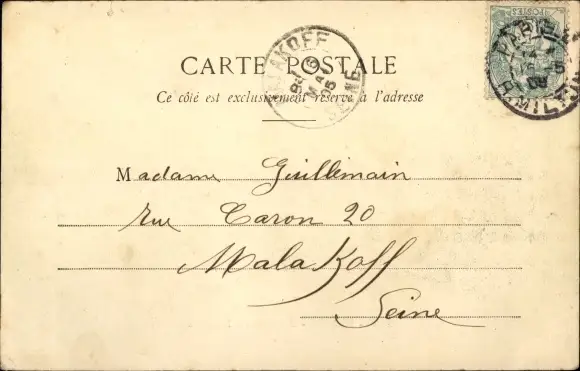 MALAKOFF
SEINE
MAI
05
POSTES
PARIS
CARTE POSTALE
Ce côté est exclusivement réservé à l'adresse
Madame Guillemain
rue Caron 20
Malakoff
Seine